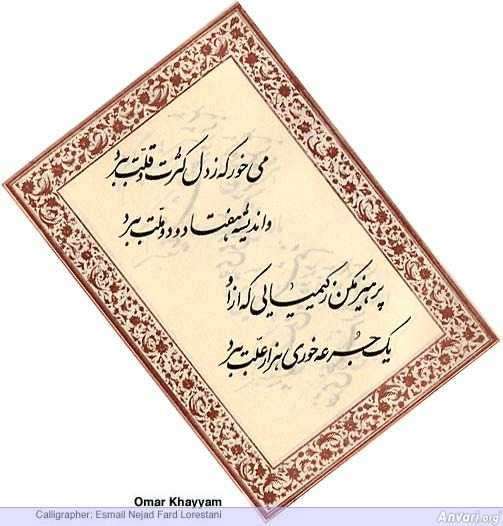 می خور که ز دل کثرت و قلّت ببرد
و اندیشه هفتاد و دو ملّت ببرد
پرهیز مکن ز کیمیایی که از او
یک جرعه خوری هزار علّت ببرد
Omar Khayyam
Calligrapher: Esmail Nejad Fard Lorestani
Anvari.org